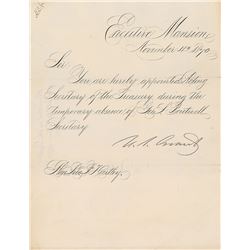 Executive Mansion
November 11th 1870
Sir
You are hereby appointed Acting
Secretary of the Treasury during the
temporary absence of Geo. S. Boutwell
Secretary
U. S. Grant
Hartley